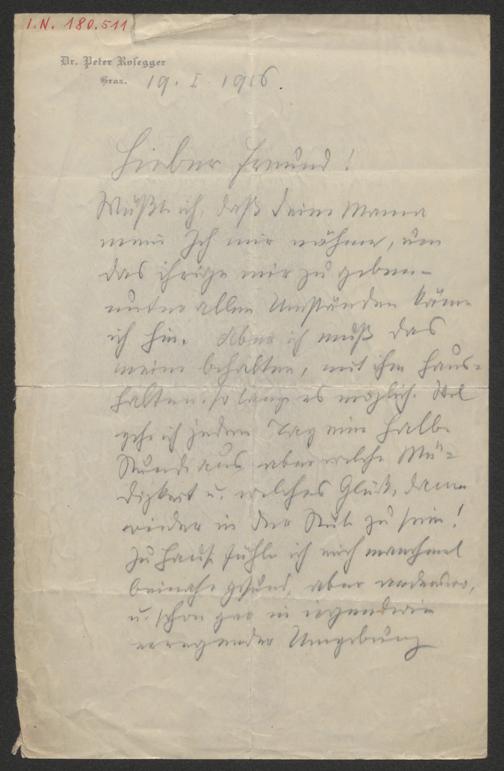 I.N. 180.511
Dr. Peter Rosegger
Graz.
19. I 1916.
Lieber Freund!
Wüßte ich, daß Deine Mama
mein Ich mir nähme, um
das ihrige mir zu geben –
unter allen Umständen käme
ich hin. Aber ich muß das
meine behalten, mit ihm haus-
halten, so lang es möglich. Wol
gehe ich jeden Tag eine halbe
Stunde aus aber welche Mü-
digkeit u. welches Glück, dann
wieder in der Stube zu sein!
Zu Hause fühle ich mich manchmal
beinahe gesund, aber anderswo,
u. schon gar in irgendwie
erregender Umgebung